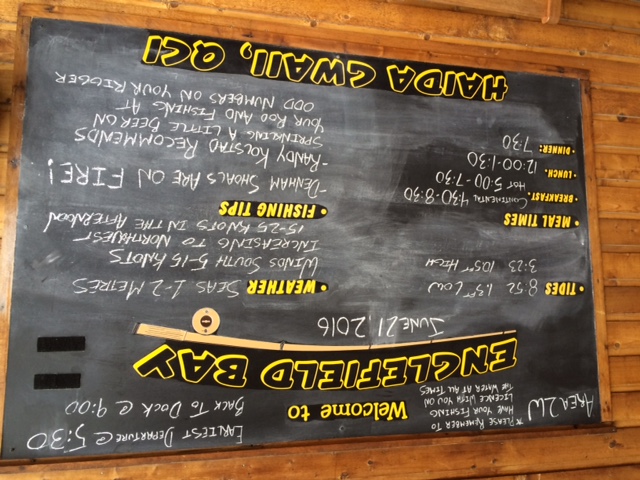 AREA 2W
* PLEASE REMEMBER TO
HAVE YOUR FISHING
LICENCE WITH YOU ON
THE WATER AT ALL TIMES
Welcome to
EARLIEST DEPARTURE @ 5:30
BACK TO DOCK @ 9:00
ENGLEFIELD BAY
JUNE 21, 2016
• TIDES
8:52 1.3FT LOW
3:23 10.5FT HIGH
• MEAL TIMES
• BREAKFAST: CONTINENTAL 4:30-8:30
HOT 5:00-7:30
• LUNCH: 12:00-1:30
• DINNER: 7:30
• WEATHER SEAS 1-2 METRES
WINDS SOUTH 5-15 KNOTS
INCREASING TO NORTHWEST
15-25 KNOTS IN THE AFTERNOON
• FISHING TIPS
-DENHAM SHOALS ARE ON FIRE!
-RANDY KOLSTAD RECOMMENDS
SPRINKLING A LITTLE BEER ON
YOUR ROD AND FISHING AT
ODD NUMBERS ON YOUR RIGGER
HAIDA GWAII, QCI